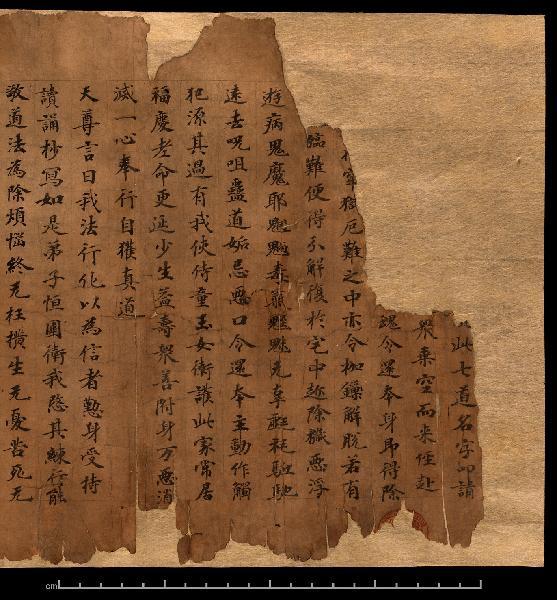 此七道名字即請
眾乘空而來侄赴
魂令還奉身即得除
牢獄厄難之中亦令枷鏁解脫若有
臨難便得分解復於宅中逐除惡浮
遊病鬼魔耶
遠去呪咀蠱道妬忌惡口令還奉主動作觸
犯源其過有我使侍童玉女衛護此家常居
福慶老命更延少生益壽眾善附身万惡消
滅一心奉行自獲真道
天尊言曰我法行化以為信者懃身受持
讀誦抄寫如是弟子恒圍衛我愍其練行能
敬道法為除煩惱終无枉撗生无憂苦死无